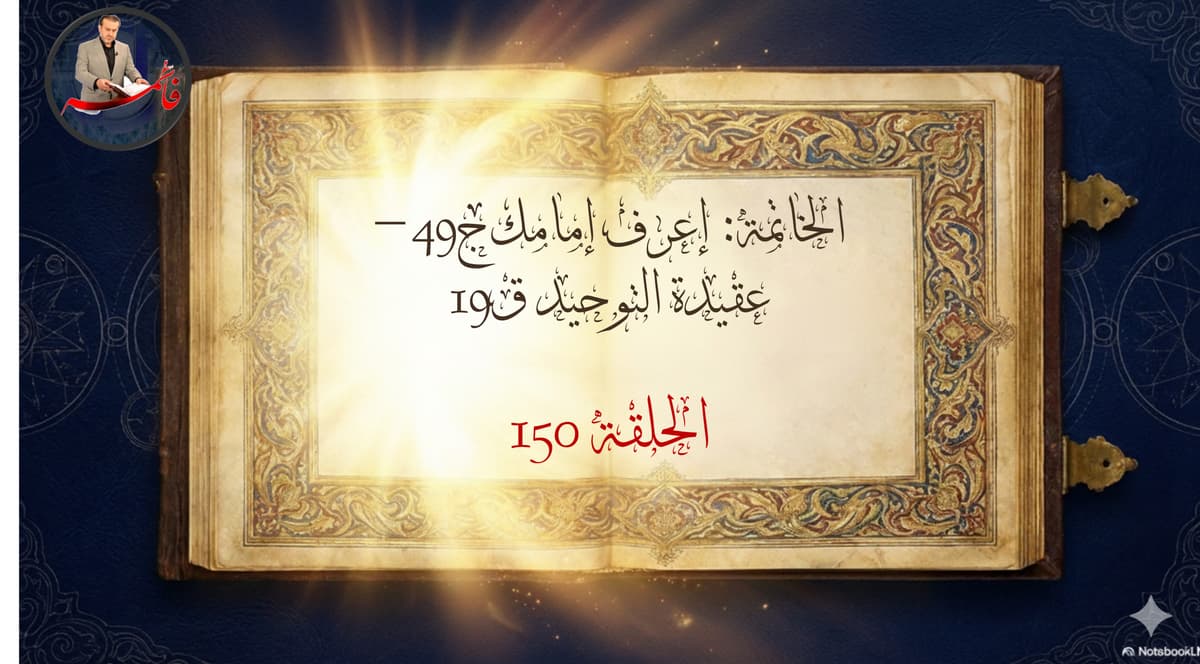 فاطمه
الخاتمة: إعرف إمامك ج49 –
عقيدة التوحيد ق19
الحلقة 150
NotsbookLM